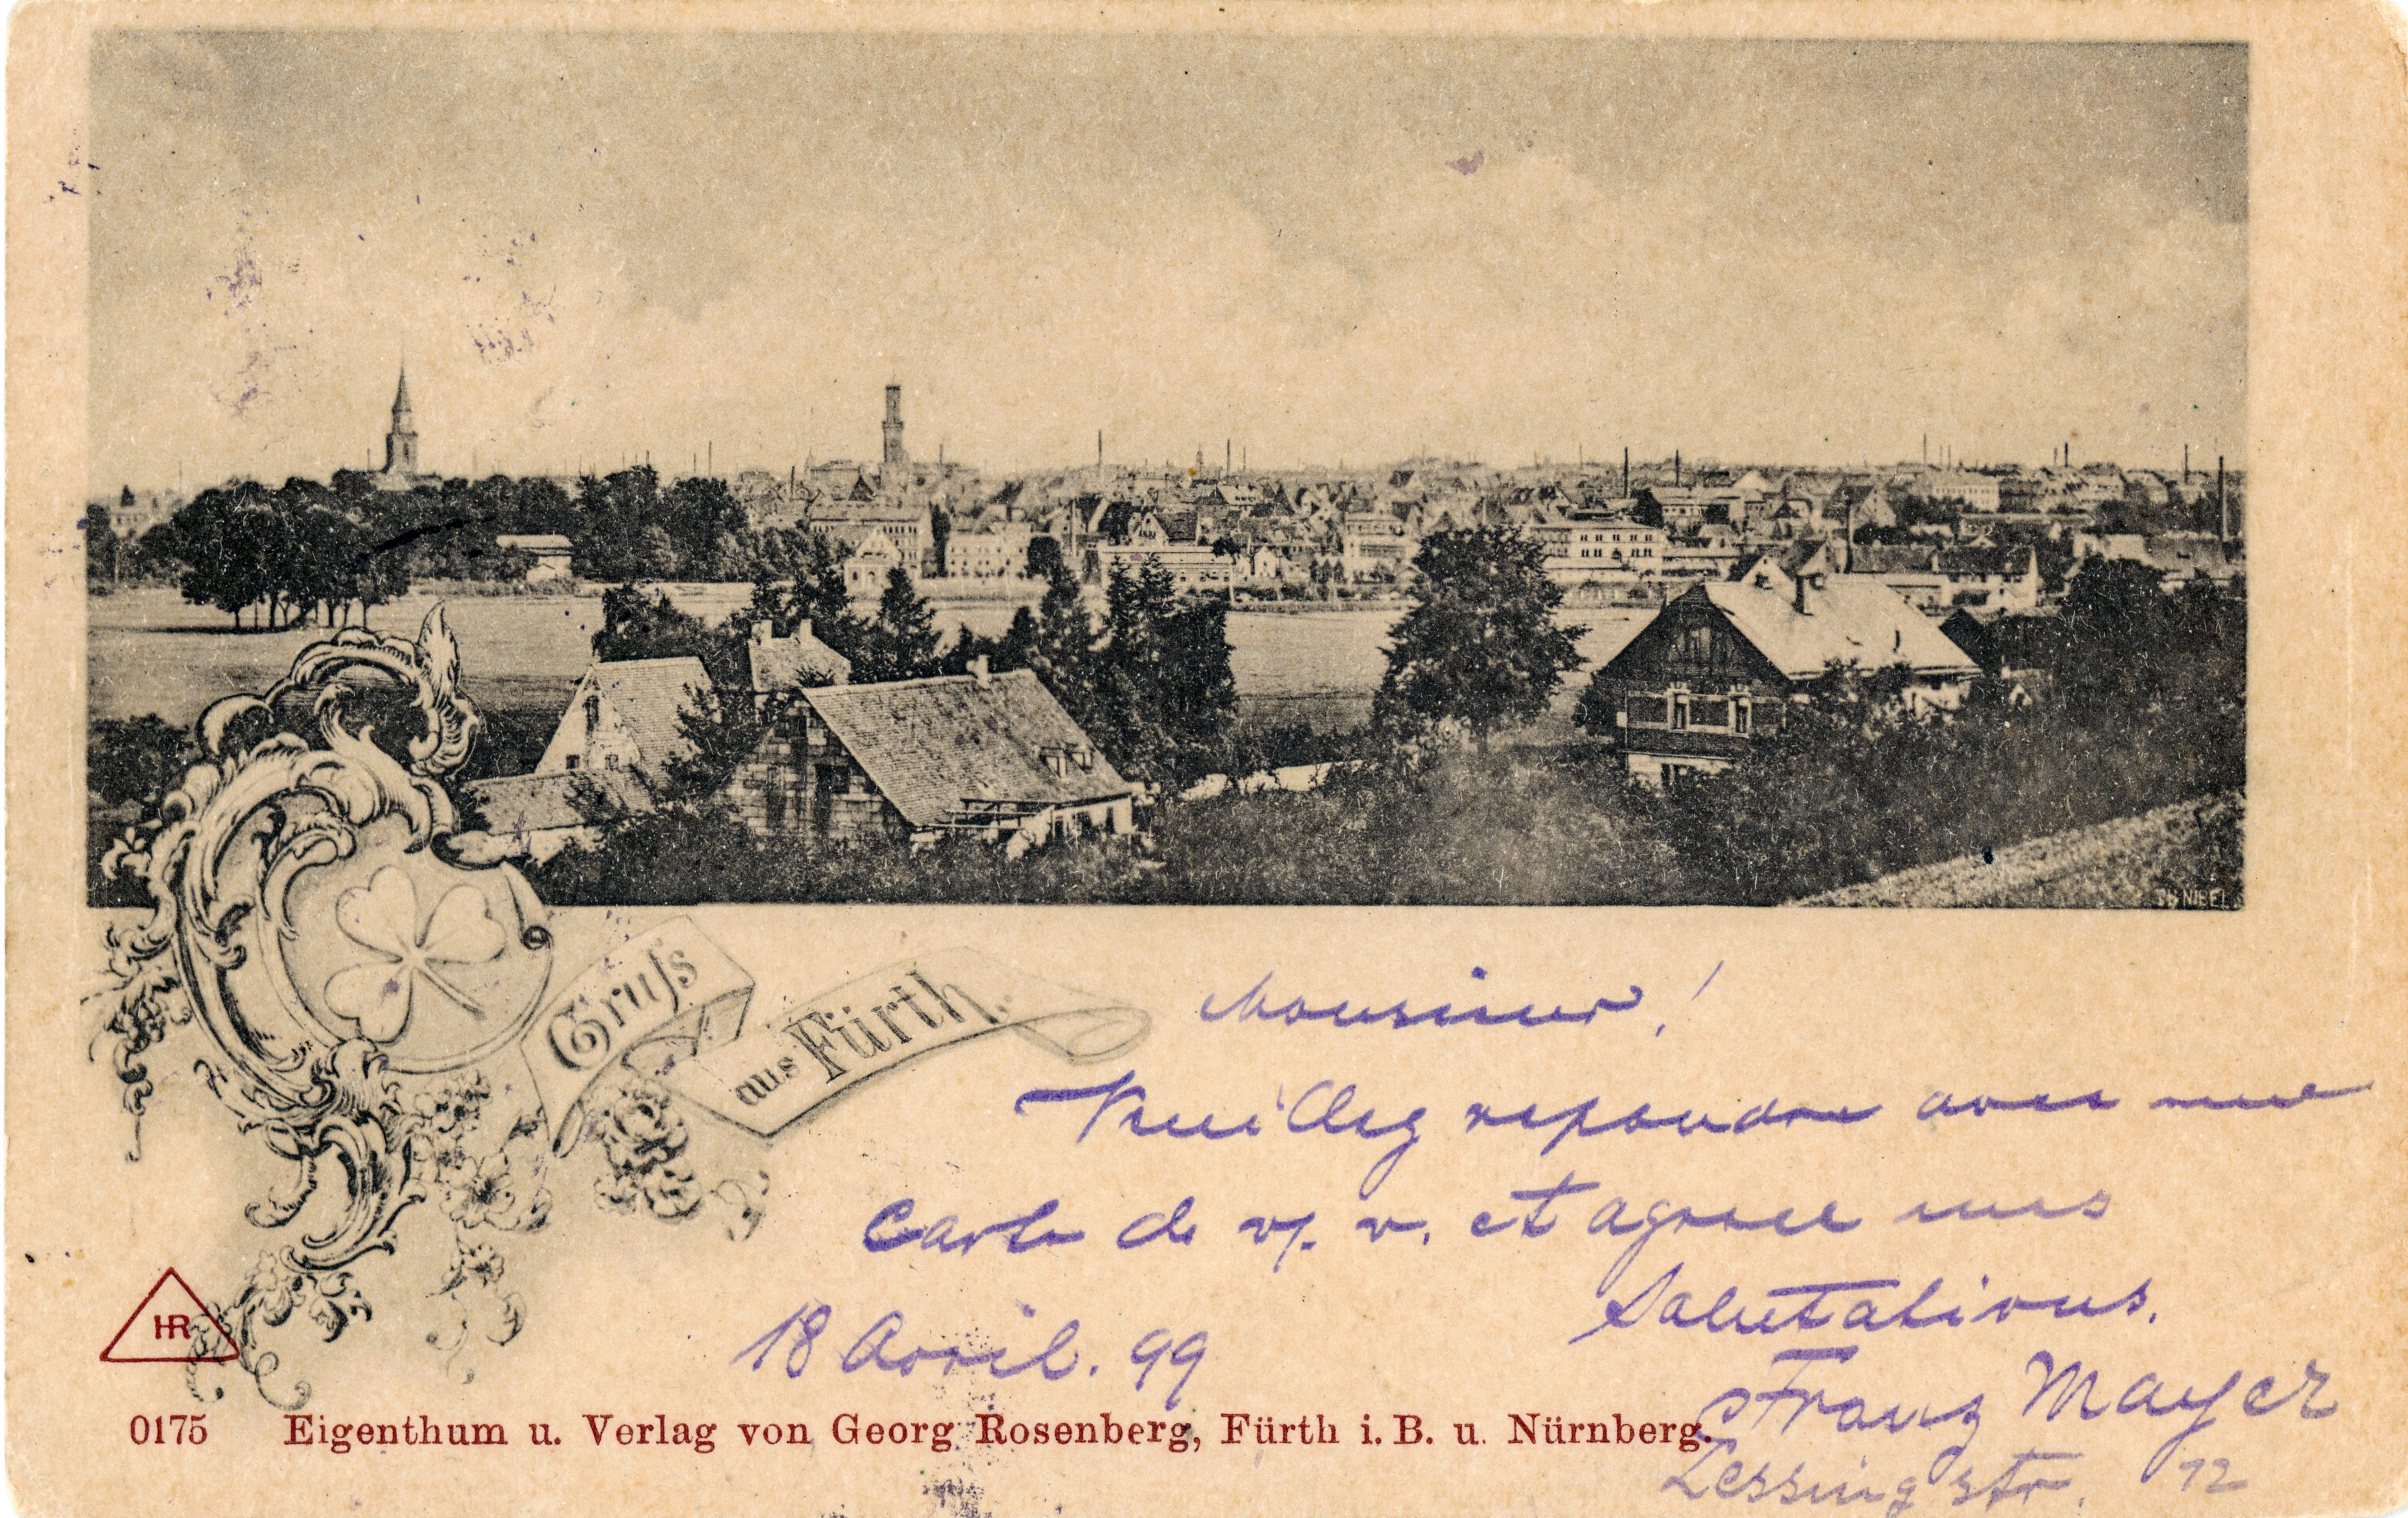 Gruß
aus Fürth.
Monsieur!
Veuillez repondre avec une
carte de p. v. et agreer mes
salutations.
18 Avril. 99
Franz Mayer
Lessingstr. 12
HR
0175 Eigenthum u. Verlag von Georg Rosenberg, Fürth i. B. u. Nürnberg.